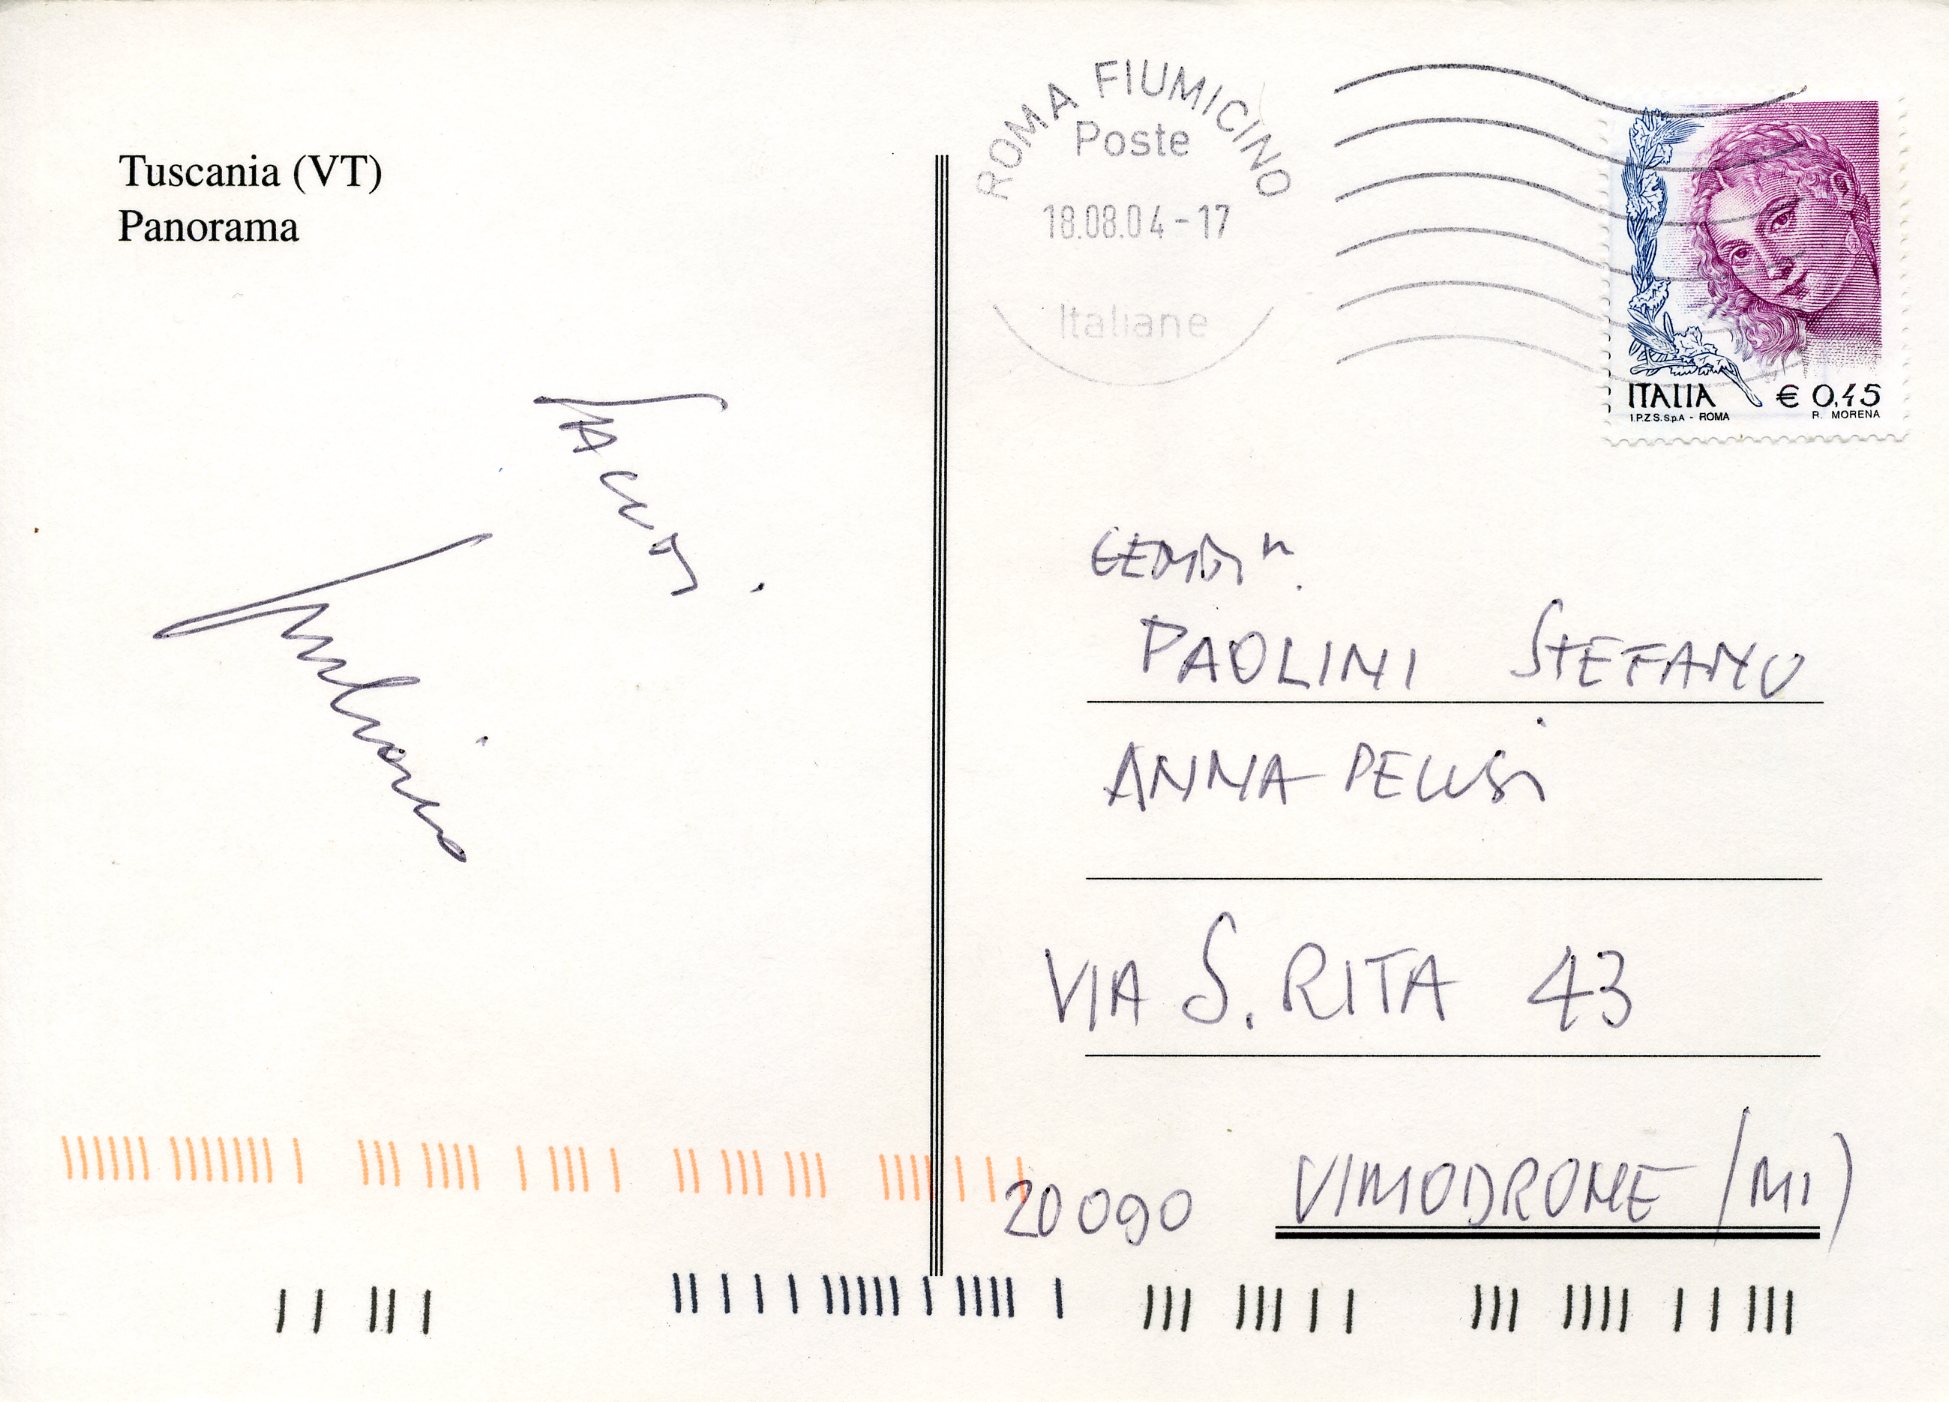 Tuscania (VT)
Panorama
ROMA FIUMICINO
Poste
18.08.04-17
Italiane
ITALIA € 0,45
I.P.Z.S. S.p.A. - ROMA R. MORENA
PAOLINI STEFANO
ANNA PELUSI
VIA S. RITA 43
20090 VIMODRONE (MI)